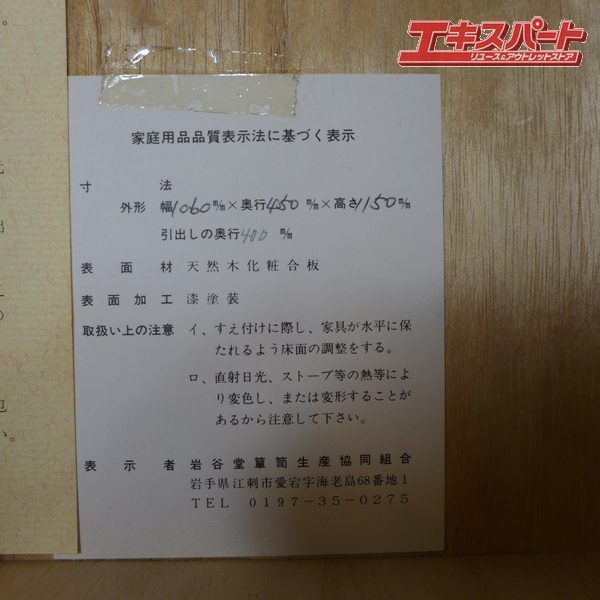 エキスパート
リユース&アウトレットストア
家庭用品品質表示法に基づく表示
寸法
外形 幅1060m/m×奥行450m/m×高さ1150m/m
引出しの奥行400m/m
表面材 天然木化粧合板
表面加工 漆塗装
取扱い上の注意 イ、すえ付けに際し、家具が水平に保
たれるよう床面の調整をする。
ロ、直射日光、ストーブ等の熱等によ
り変色し、または変形することが
あるから注意して下さい。
表示者 岩谷堂簞笥生産協同組合
岩手県江刺市愛宕字海老島68番地1
TEL 0197-35-0275
い。